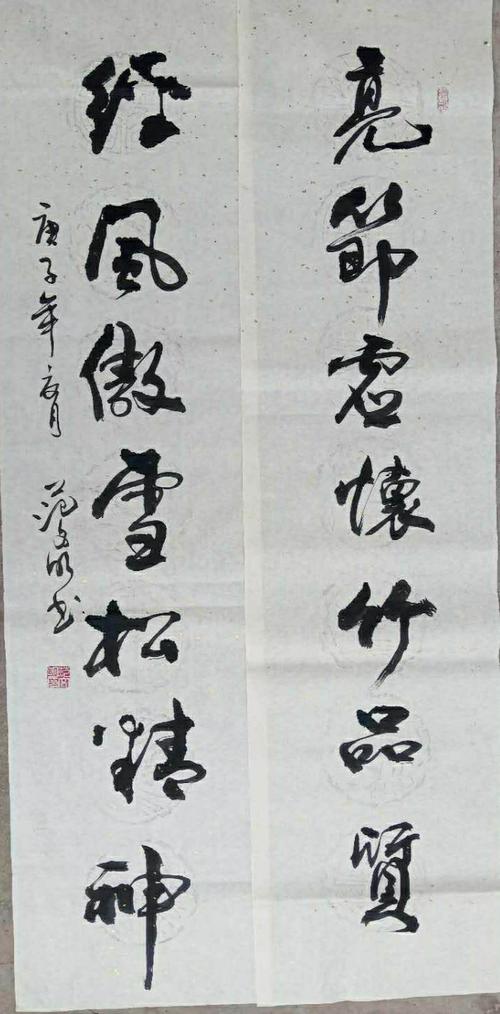 亮節虛懷竹品質
經風傲雪松精神
庚子年
范文明书